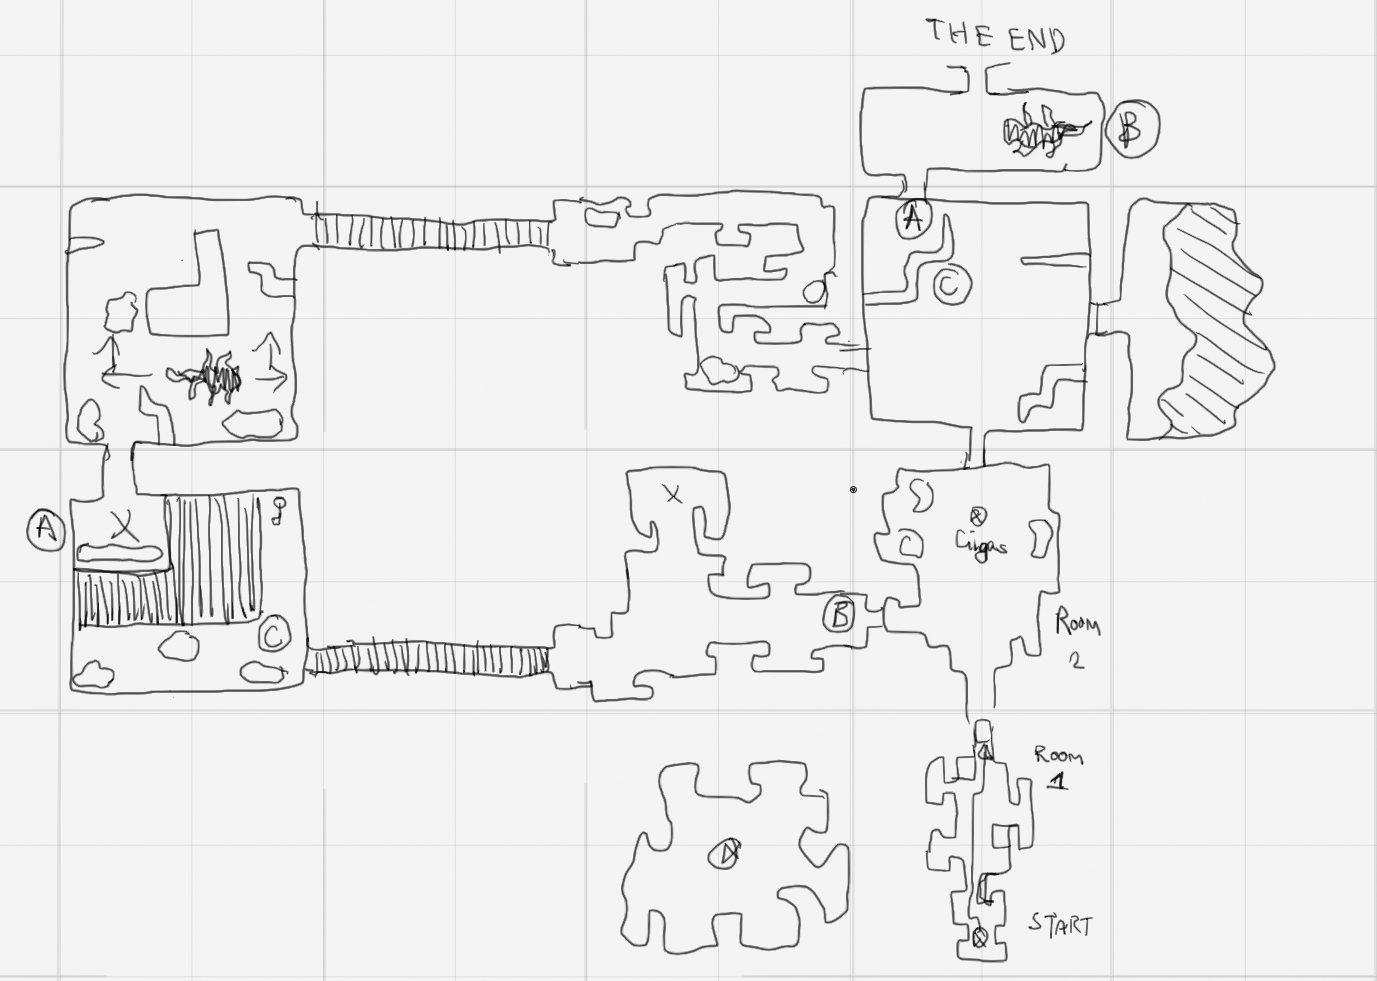 THE END
B
A
C
X
A
X
C
B
Cingas
ROOM
2
ROOM
1
START